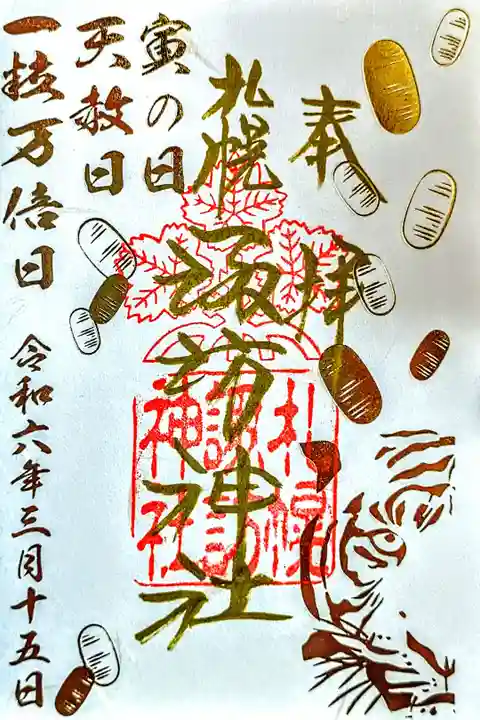 奉拝
札幌諏訪神社
寅の日
天赦日
一粒万倍日
令和六年三月十五日
札幌
諏訪
神社